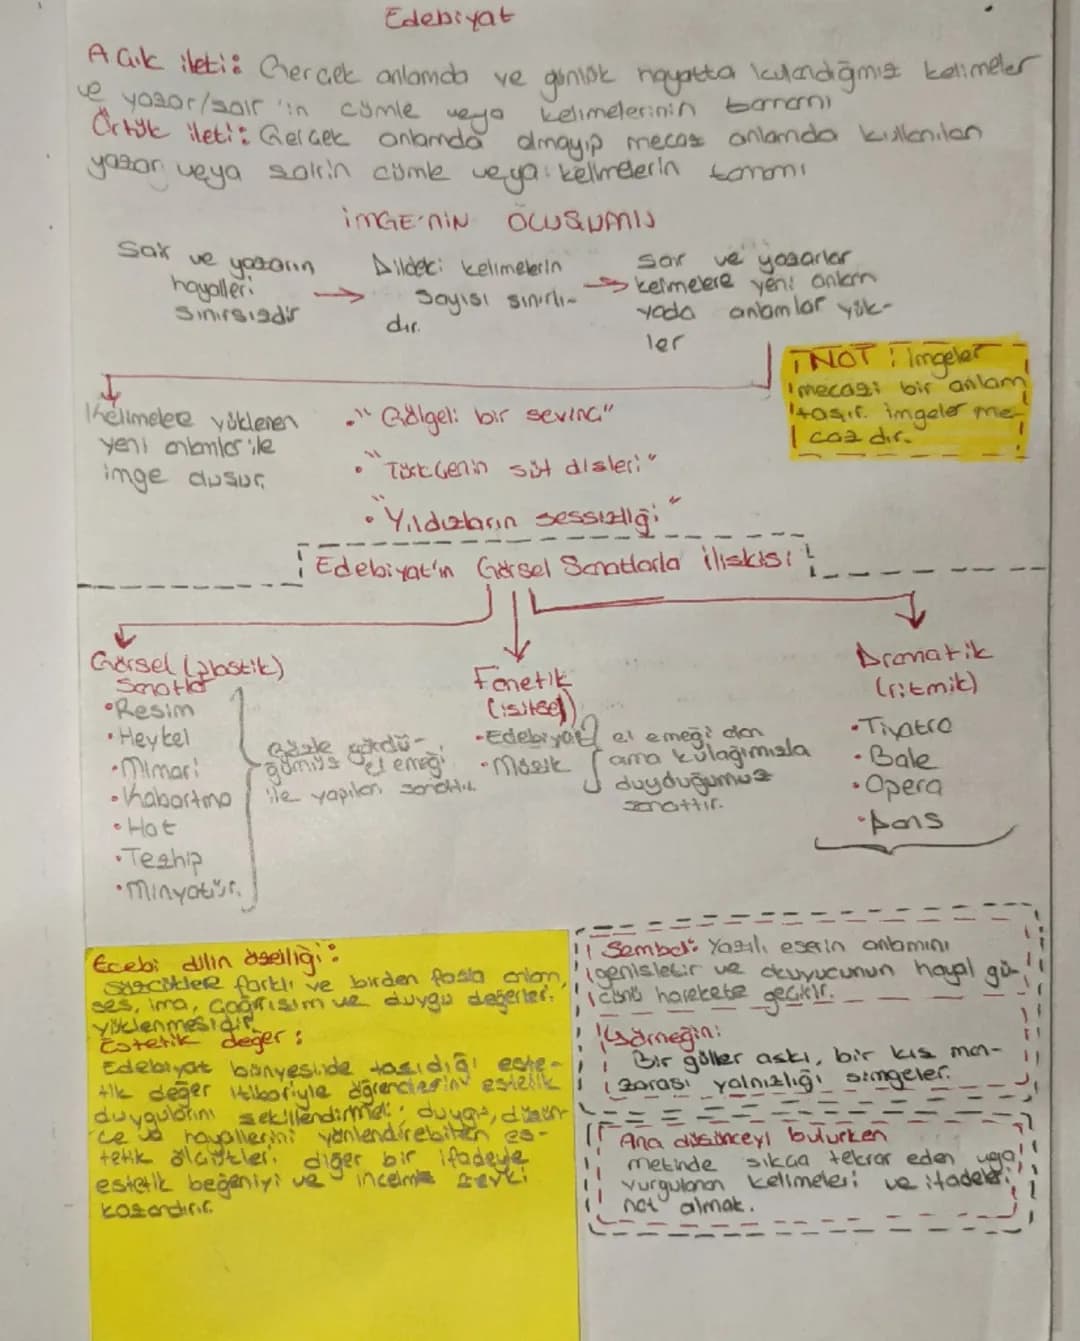 Edebiyat
Açık ileti: Gerçek anlamda ve günlük hayatta kullandığımız kelimeler
ve yazar/şair'in cümle veya kelimelerinin tamamı
Örtük ileti: Gerçek anlamda olmayıp mecaz anlamda kullanılan
yazar veya şairin cümle veya kelimelerin tamamı
İMGE'NİN OLUŞUMU
Şair ve yazarın
hayalleri
sınırsızdır
Dildeki kelimelerin
sayısı sınırlı-
dır.
Şair ve yazarlar
kelimelere yeni anlam
yada anlamlar yük-
ler
NOT: imgeler
mecazi bir anlam
taşır. imgeler me-
cazdır.
Kelimelere yüklenen
yeni anlamlar ile
imge oluşur.
• "Gölgeli bir sevinç"
• "Türkçenin süt dişleri"
• "Yıldızların sessizliği"
Edebiyat'ın Görsel Sanatlarla İlişkisi
Görsel (plastik)
Sanatlar
• Resim
• Heykel
• Mimari
• Kabartma
• Hat
• Tezhip
• Minyatür.
Gözle gördü-
ğümüz el emeği
ile yapılan sanattır.
Fonetik
(işitsel)
• Edebiyat
• Müzik
el emeği
ama kulağımızla
duyduğumuz
sanattır.
Dramatik
(ritmik)
• Tiyatro
• Bale
• Opera
• Dans
Edebi dilin özelliği:
Sözcüklere farklı ve birden fazla anlam,
ses, ima, çağrışım ve duygu değerler.
yüklenmesidir.
Estetik değer:
Edebiyat bünyesinde taşıdığı este-
tik değer itibariyle öğrencilerin estetik
duygularını şekillendirmeli. duygu, düşün-
ce ve hayallerini yönlendirebilen es-
tetik ölçütleri. diğer bir ifadeyle
estetik beğeniyi ve zevki
kazandırır.
Sembol: Yazılı eserin anlamını
genişletir ve okuyucunun hayal gü-
cünü harekete geçirir.
Örneğin:
Bir güller aşkı, bir kış man-
zarası yalnızlığı simgeler.
Ana düşünceyi bulurken
metinde sıkça tekrar eden veya
vurgulanan kelimeleri ve ifadeleri
not almak.